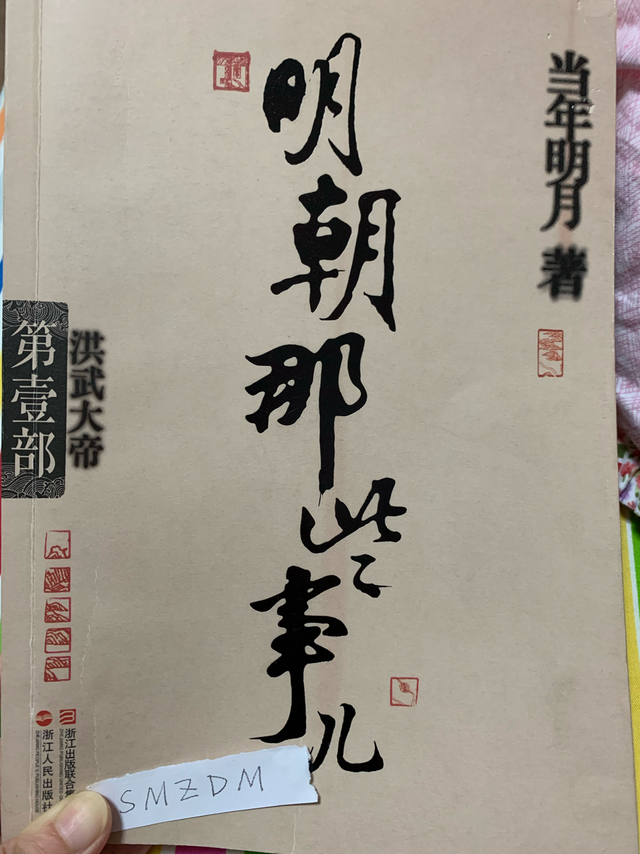 当年明月 著
明朝那些事儿
第壹部
洪武大帝
浙江出版联合集
浙江人民出版社
SMZDM